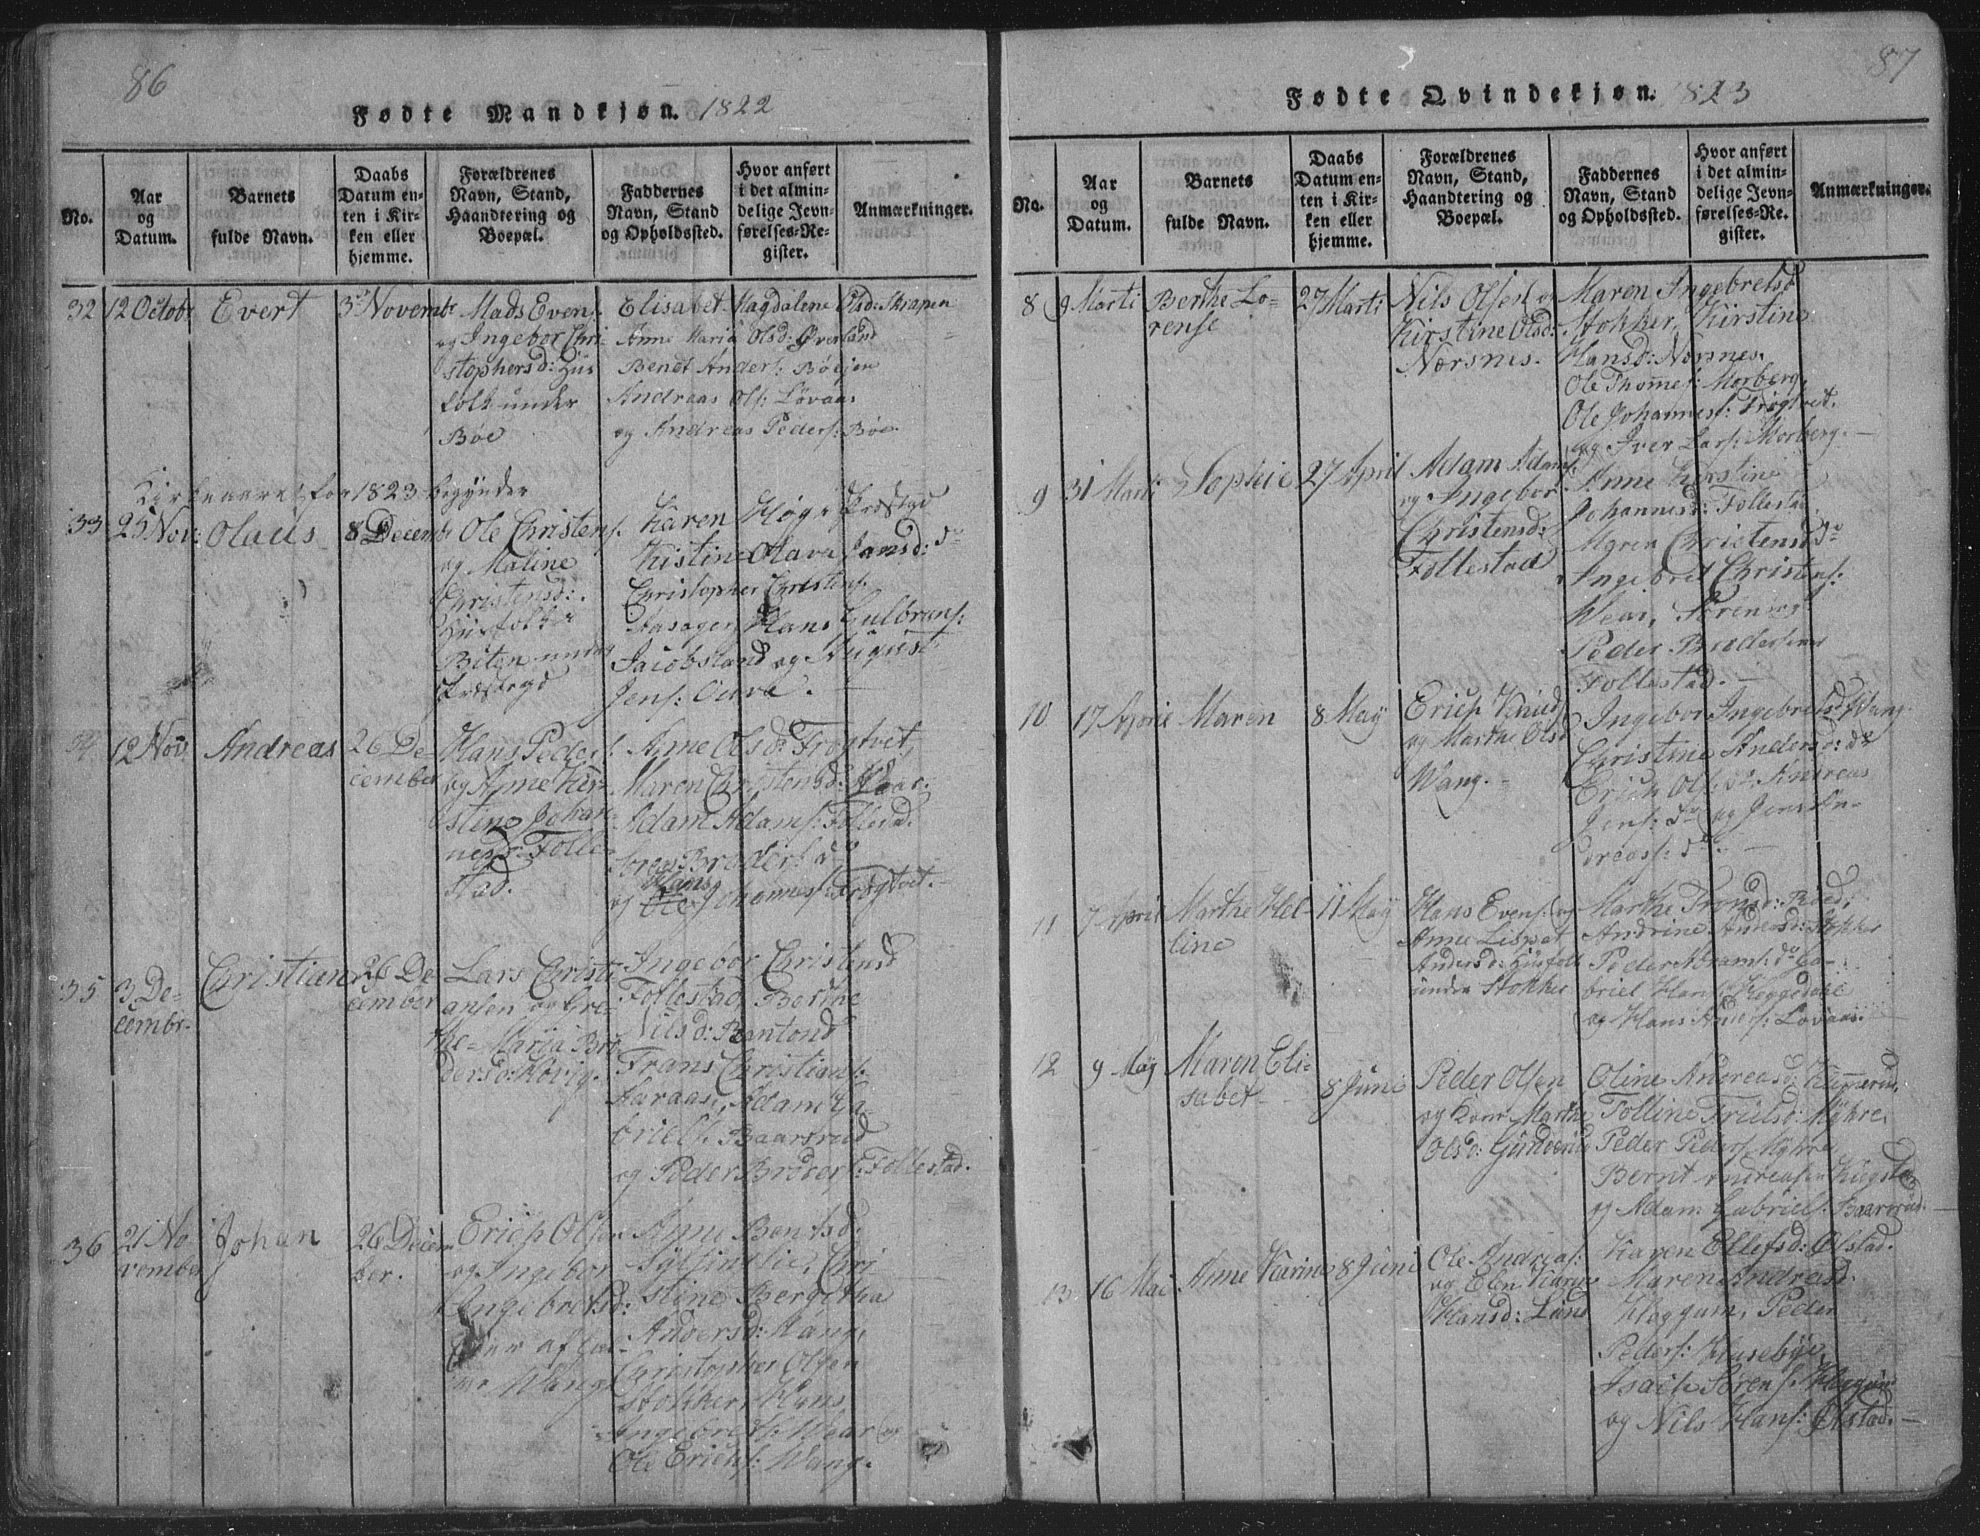 86
Fødte Mandkjøn. 1822
No.
Aar
og
Datum.
Barnets
fulde Navn.
Daabs
Datum en-
ten i Kir-
ken eller
hjemme.
Forældrenes
Navn, Stand,
Haandtering og
Boepæl.
Faddernes
Navn, Stand
og Opholdssted.
Hvor anført
i det almin-
delige Jevn-
førelses-Re-
gister.
Anmærkninger.
32
12 Octobr
Evert
3 Novembr
Mads Evens:
og Ingebor Chri-
stophersd: Huus
folk under
Bøe
Elisabet Magdalene
Anne Maria Olsd: Øverland
Bendt Anders: Bøejen
Andreas Ols: Løvaas
og Andreas Peders: Bøe
Kirkeaaret for 1823 begynder
33
25 Nov:
Olaus
8 Decembr
Ole Christens:
og Maline
Christensd:
Huusfolk
under
Præstegd
Karen Høg Præstegd
Kistine Olava Jansd: do
Christopher Christens:
Hans Gulbrans:
Jacobsland og August
Jens:
34
12 Nov
Andreas
26 De-
cember
Hans Peders:
og Anne Kir-
stine Johan-
nesd: Folle-
stad.
Anne Olsd: Trøgtvet,
Maren Christensd:
Adam Adams: Follestad.
Broders: do
Hans
og Ole Johannes: Trøgtvet.
35
3 De-
cembr.
Christian
26 De-
cember
Lars Christi-
ansen og Gre-
the Maria Bro-
dersd: Høvig.
Ingebor Christensd
Follestad Berthe
Nilsd:
Frans Christians:
Aaraas, Adam Ga-
briels: Baarsrud
og Peder Broders: Follestad.
36
21 No
vember
Johan
26 Decem
ber.
Erich Olsen
og Ingebor
Ingebretsd:
Wang
Anne Bentsd:
Chri-
stine Bergitha
Andersd: Wang,
Christopher Olsen
Stokker, Hans
Ingebreth: Wear og
Ole Erichs: Wang.
87
Fødte Qvindekjøn. 1823
No.
Aar
og
Datum.
Barnets
fulde Navn.
Daabs
Datum en-
ten i Kir-
ken eller
hjemme.
Forældrenes
Navn, Stand,
Haandtering og
Boepæl.
Faddernes
Navn, Stand
og Opholdssted.
Hvor anført
i det almin-
delige Jevn-
førelses-Re-
gister.
Anmærkninger.
8
9 Marti
Berthe Lo-
rense
27 Marti
Nils Olsen og
Kirstine Olsd:
Nærsnes.
Maren Ingebretsd
Stokker, Kirstine
Hansd: Nærsnes.
Ole Thomes: Morberg,
Ole Johannes: Trøgtvet.
og Iver Lars: Morberg.
9
31 Marti
Sophie
27 April
Adam Adams:
og Ingebor
Christensd:
Follestad
Anne Kirstine
Johannesd: Follestad.
Maren Christensd do
Ingebret Christens:
Wear, Sören og
Peder Brodersens
Follestad.
10
17 April
Maren
8 May
Erich Knuds
og Marthe Olsd
Wang.
Ingebor Ingebretsd Wang
Christine Andersd: do
Erich Ols: do Andreas
Jens: do og Jens An-
dreas: do
11
7 April
Marthe Hel-
line
11 May
Hans Evens: og
Anne Lisbet
Andersd: Huusfolk
under Stokker
Marthe Tronsd: Røed,
Andrine Andersd: Stokker
Peder Abrams: do Ga-
briel Hans: Heggedahl
og Hans Anders: Lovaas.
12
9 May
Maren Eli-
sabet
8 Juni
Peder Olsen
og Kone Marthe
Olsd: Gunderud
Oline Andreasd:
Folline Trulsd: Myhre,
Peder Peders: Myhre
Bernt Andreasen
og Adam Gabriels: Baarsrud.
13
16 Mai
Anne Karine
8 Juni
Ole Andreas:
og Elen Karine
Hansd: Lund
Karen Ellefsd: Ølstad.
Maren Andreasd.
Heggum, Peder
Peders: Husebye,
Isaih Sörens: Heggum
og Nils Hans: Ølstad.